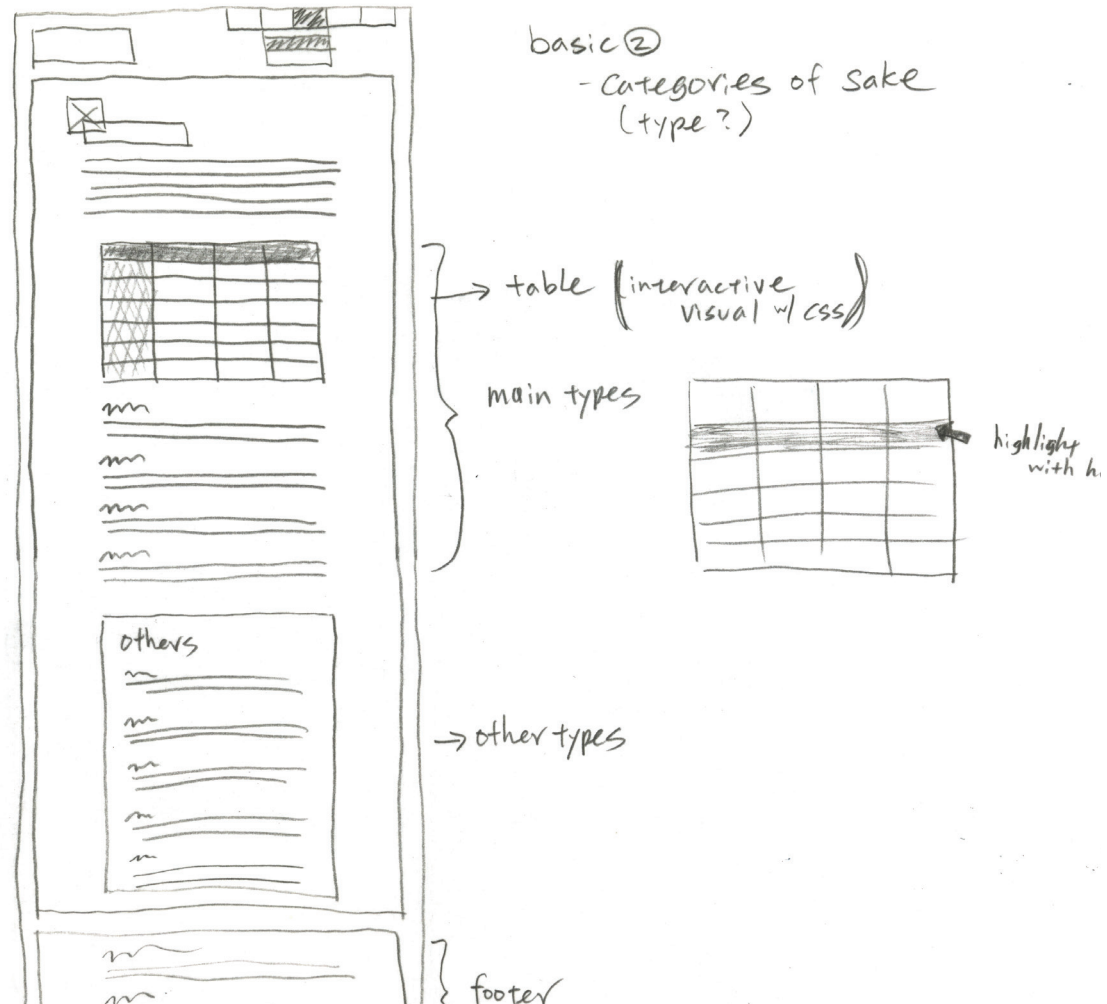 basic ②
- categories of sake
(type?)
→ table (interactive
visual w/ css)
main types
highlight
with
others
→ other types
footer